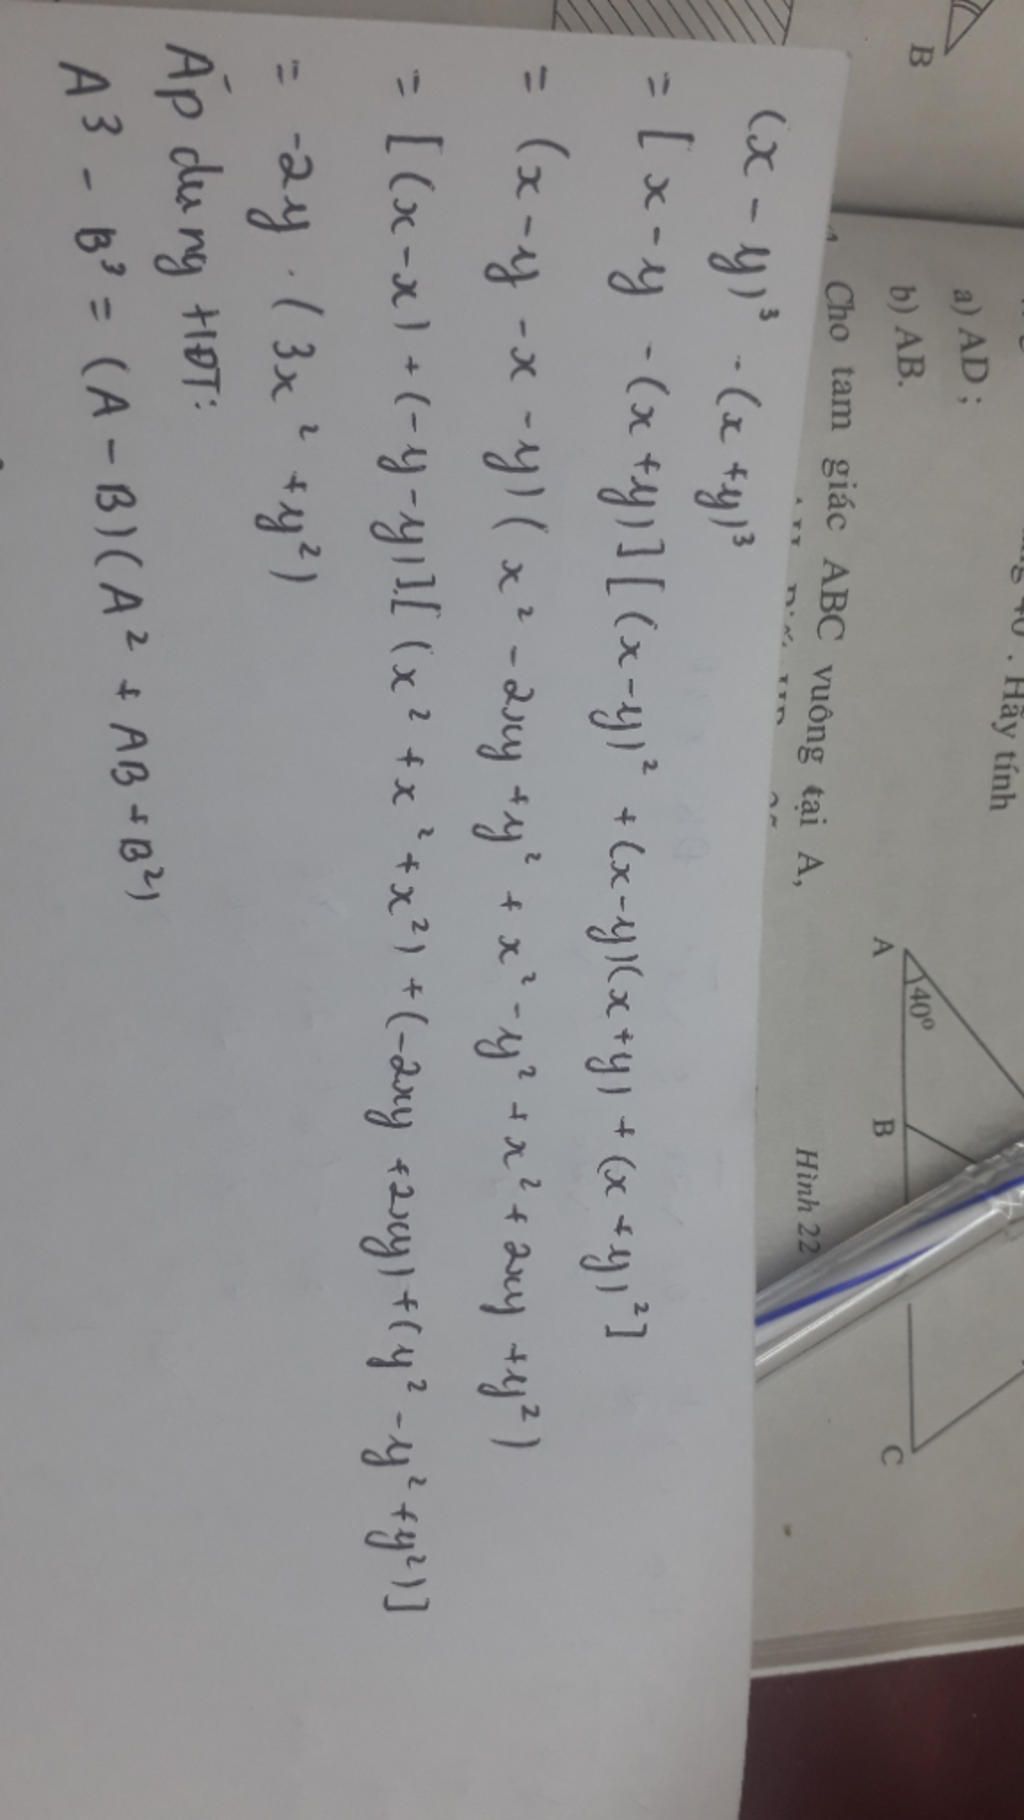 B
Hãy tính
a) AD ;
b) AB.
Cho tam giác ABC vuông tại A,
A
40°
B
C
Hình 22
(x - y)³ - (x + y)³
= [x - y - (x + y)][(x - y)² + (x - y)(x + y) + (x + y)²]
= (x - y - x - y)(x² - 2xy + y² + x² - y² + x² + 2xy + y²)
= [(x - x) + (- y - y)].[(x² + x² + x²) + (-2xy + 2xy) + (y² - y² + y²)]
= -2y . (3x² + y²)
Áp dụng HĐT:
A³ - B³ = (A - B)(A² + AB + B²)